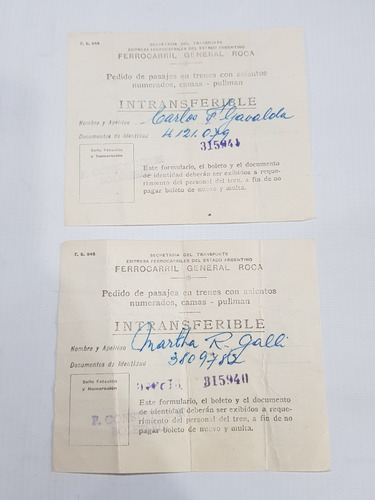 F. G. 848
SECRETARIA DEL TRANSPORTE
EMPRESA FERROCARRILES DEL ESTADO ARGENTINO
FERROCARRIL GENERAL ROCA
Pedido de pasajes en trenes con asientos
numerados, camas - pullman
INTRANSFERIBLE
Nombre y Apellido Carlos F. Gavalda
Documentos de Identidad 4.121.079
315941
Sello Estación
y Numeración
Este formulario, el boleto y el documento
de identidad deberán ser exhibidos a reque-
rimiento del personal del tren, a fin de no
pagar boleto de nuevo y multa.
F. G. 848
SECRETARIA DEL TRANSPORTE
EMPRESA FERROCARRILES DEL ESTADO ARGENTINO
FERROCARRIL GENERAL ROCA
Pedido de pasajes en trenes con asientos
numerados, camas - pullman
INTRANSFERIBLE
Nombre y Apellido Martha R. Galli
Documentos de Identidad 3809782
315940
Sello Estación
y Numeración
Este formulario, el boleto y el documento
de identidad deberán ser exhibidos a reque-
rimiento del personal del tren, a fin de no
pagar boleto de nuevo y multa.